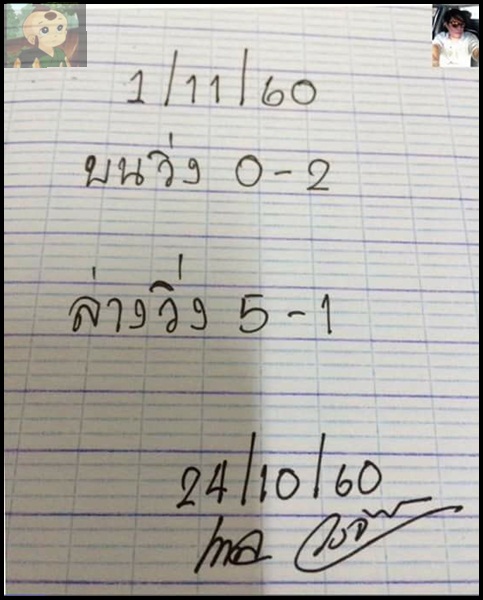 1/11/60
บนวิ่ง 0-2
ล่างวิ่ง 5-1
24/10/60